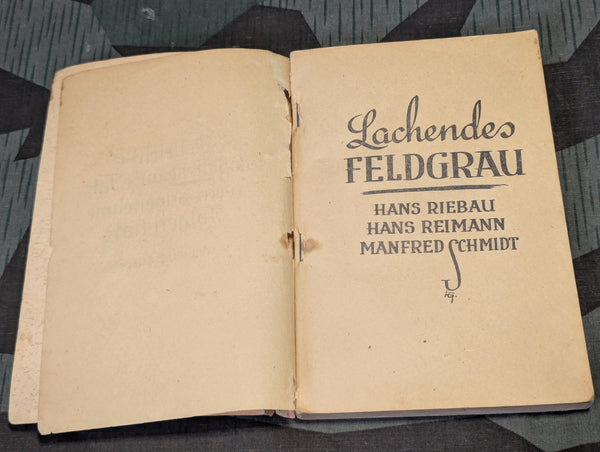 Lachendes
FELDGRAU
HANS RIEBAU
HANS REIMANN
MANFRED SCHMIDT